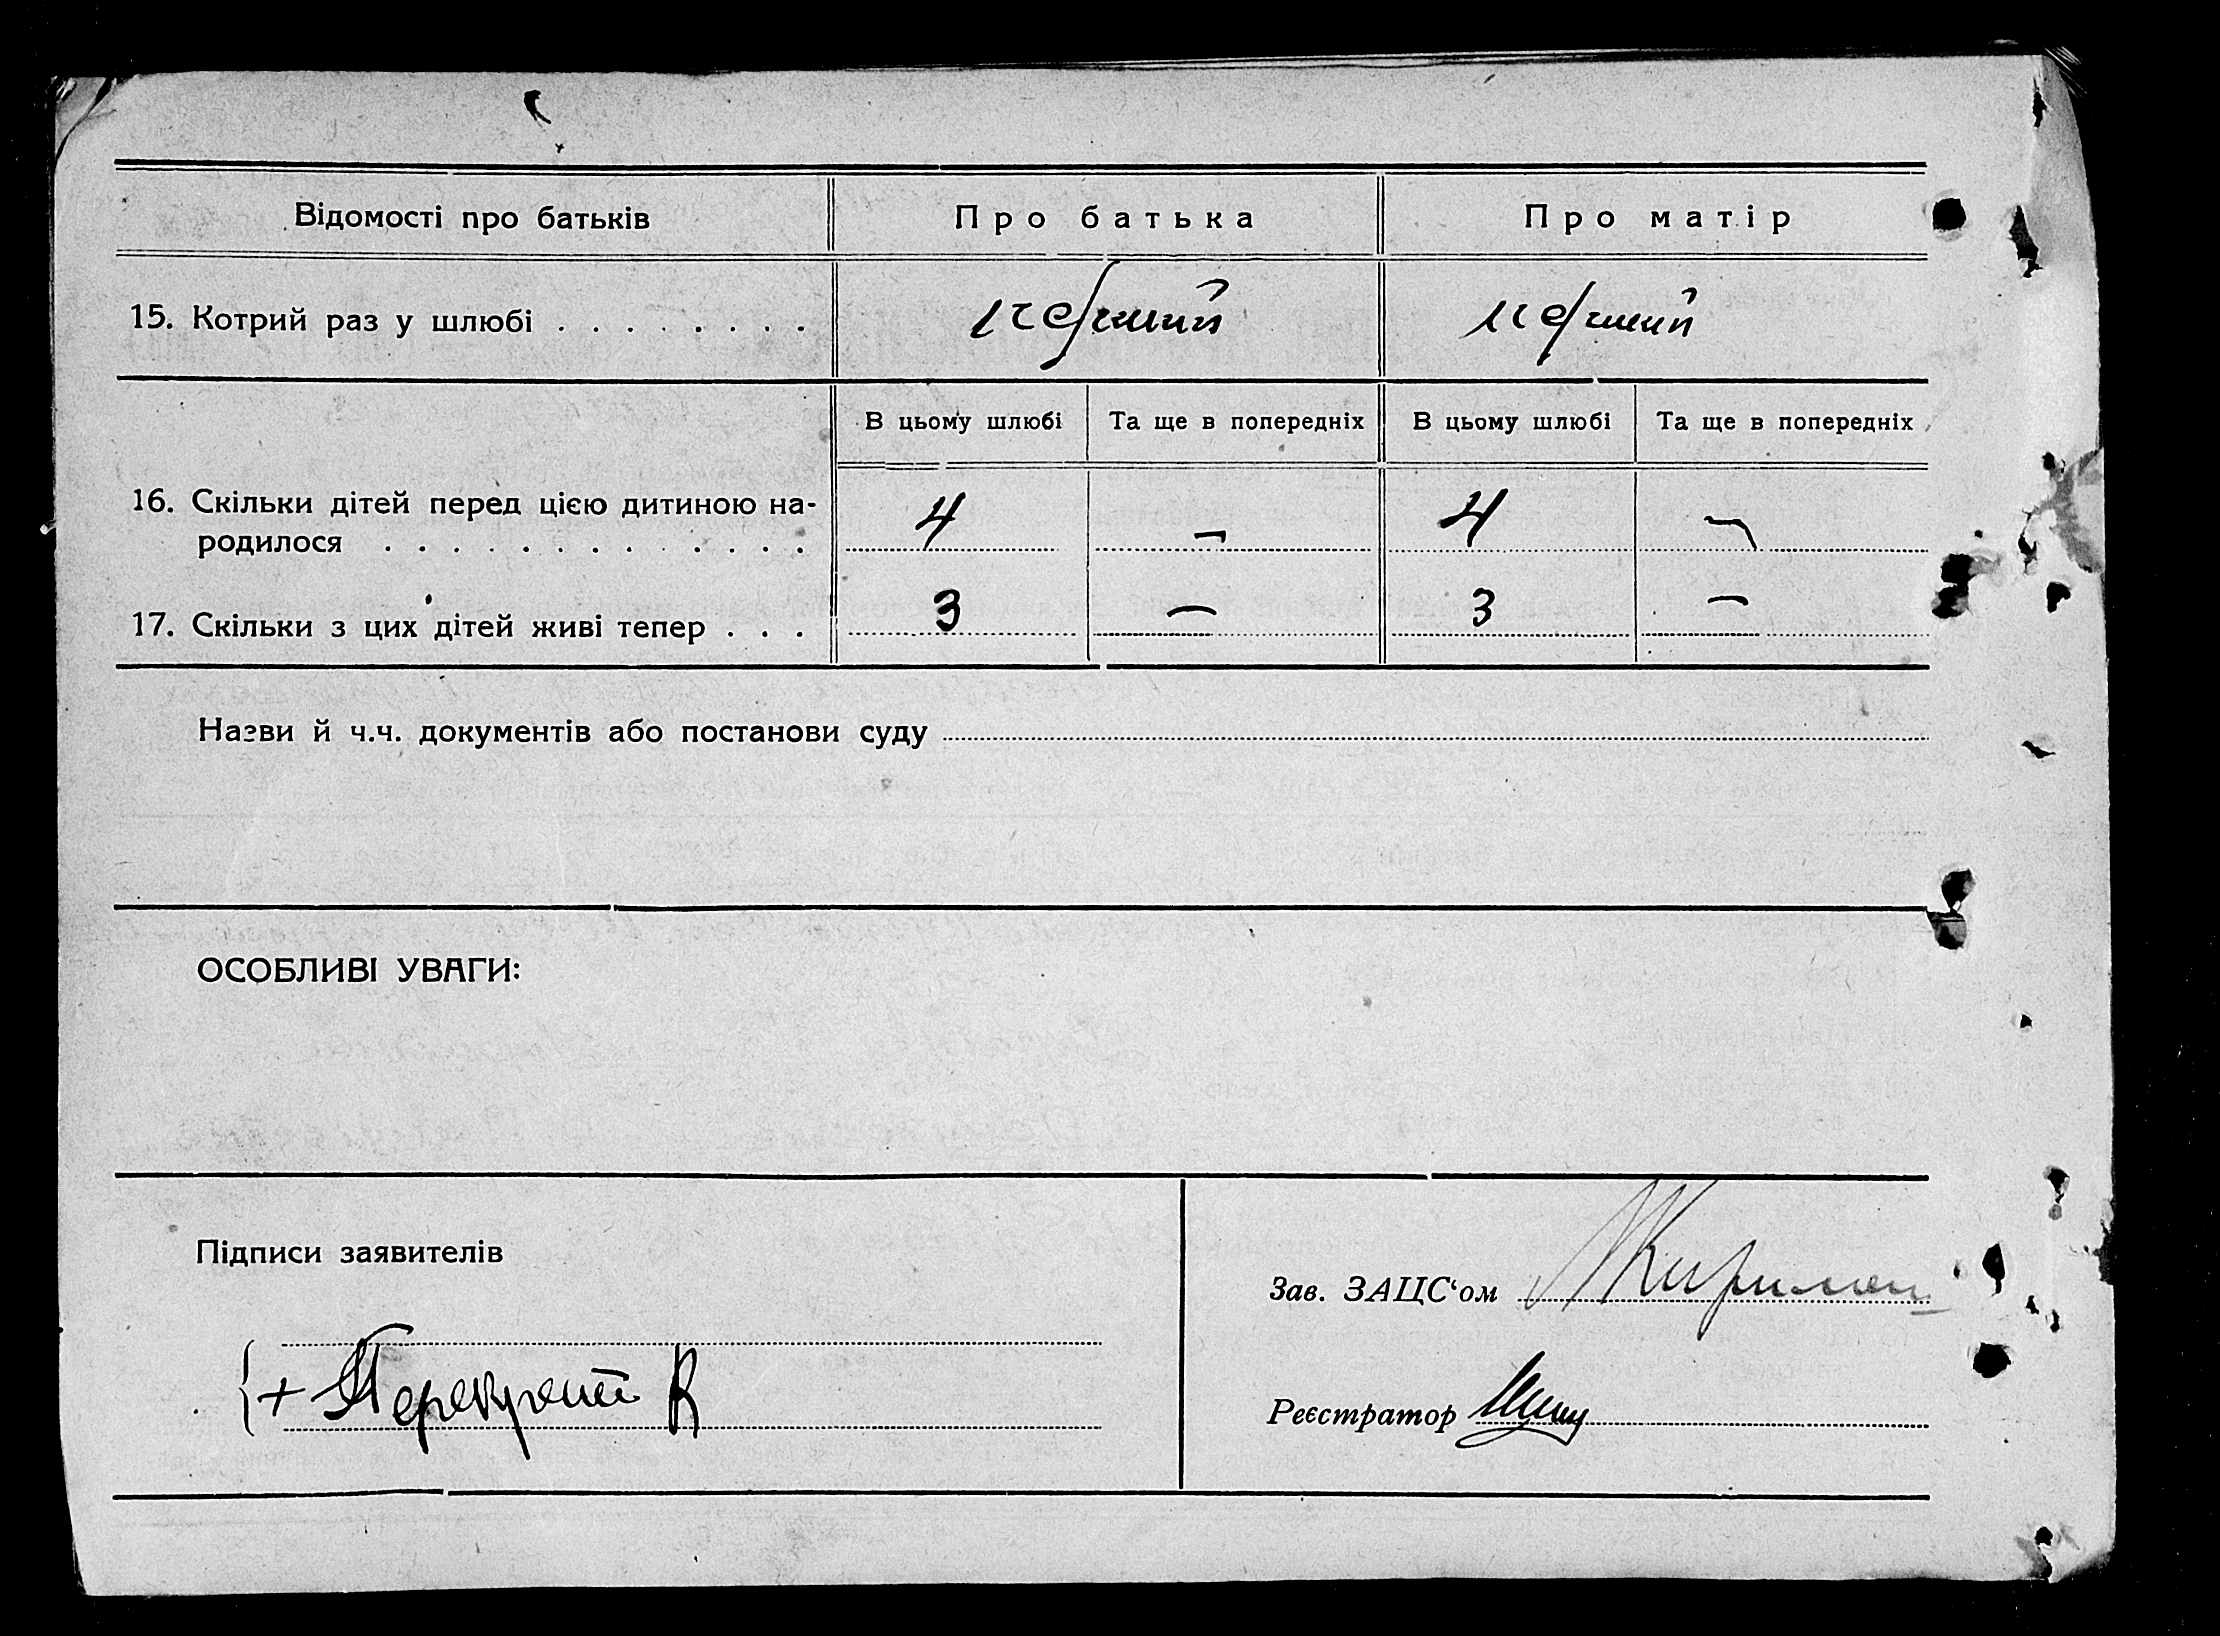 Відомості про батьків Про батька Про матір
15. Котрий раз у шлюбі . . . . . . . . перший перший
В цьому шлюбі Та ще в попередніх В цьому шлюбі Та ще в попередніх
16. Скільки дітей перед цією дитиною на-
родилося . . . . . . . . . . . . . 4 — 4 —
17. Скільки з цих дітей живі тепер . . . 3 — 3 —
Назви й ч.ч. документів або постанови суду
ОСОБЛИВІ УВАГИ:
Підписи заявителів
Зав. ЗАЦС‘ом
+ К
Реєстратор